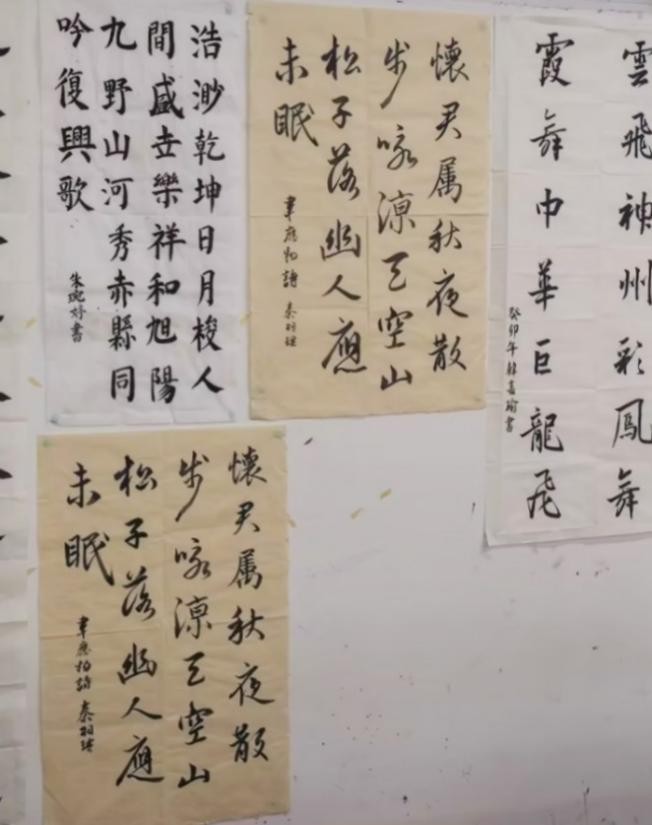 雲飛神州彩鳳舞
霞舞中華巨龍飛
癸卯年韓嘉瑜書
懷君属秋夜散
步咏凉天空山
松子落幽人應
未眠
韋應物詩 秦羽
浩渺乾坤日月梭人
間盛世樂祥和旭陽
九野山河秀赤縣同
吟復興歌
朱琬婷書
懷君属秋夜散
步咏凉天空山
松子落幽人應
未眠
韋應物詩 秦羽